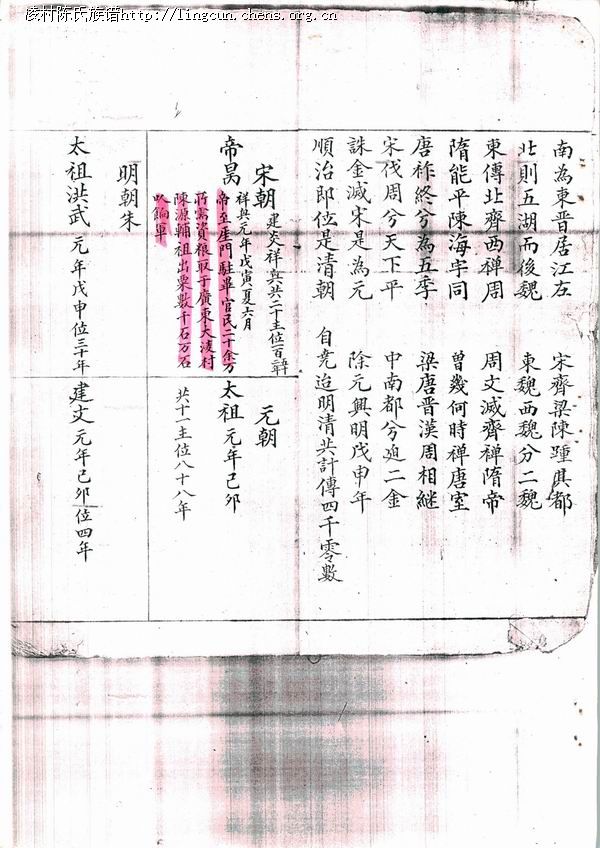 凌村陈氏族谱http://lingcun.chens.org.cn
南為東晋居江左 宋齊梁陳踵其都
北則五湖而後魏 東魏西魏分二魏
東傳北齊西禅周 周文滅齊禅隋帝
隋能平陳海宇同 曾幾何時禅唐室
唐祚終兮為五季 梁唐晋漢周相継
宋伐周兮天下平 中南都兮迫二金
誅金滅宋是為元 除元興明戊申年
順治即位是清朝 自堯迨明清共計傳四千零數
宋朝 建炎祥興共二十主位百
帝昺 祥興元年戊寅夏六月
帝至崖門駐畢官民二十余万
蒋需資粮取于廣東大凌村
陳源輔祖出粟數千石万石
以餉軍
元朝
太祖 元年己卯
共十一主位八十八年
明朝朱
太祖洪武 元年戊申位三十年
建文 元年己卯位四年